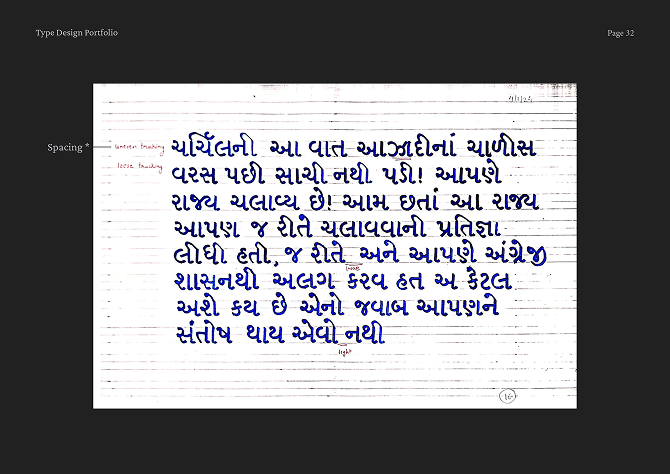 Type Design Portfolio
Page 32
4/1/24
Spacing *
uneven tracking
loose tracking
ચર્ચિલની આ વાત આઝાદીનાં ચાળીસ
વરસ પછી સાચી નથી પડી! આપણે
રાજ્ય ચલાવ્ય છે! આમ છતાં આ રાજ્ય
આપણ જ રીતે ચલાવવાની પ્રતિજ્ઞા
લીધી હતી, જ રીતે અને આપણે અંગ્રેજી
loose
શાસનથી અલગ કરવ હત અ કેટલ
અશે કય છે એનો જવાબ આપણને
સંતોષ થાય એવો નથી
tight
16